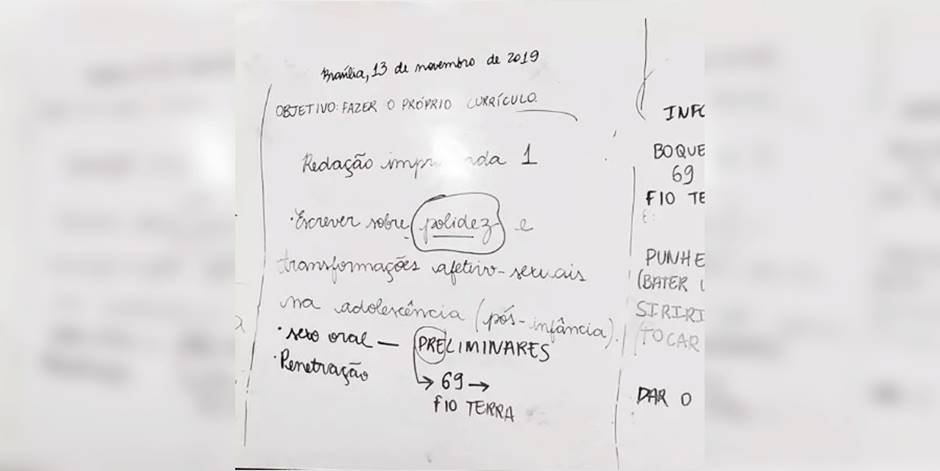 Brasília, 13 de novembro de 2019
OBJETIVO: FAZER O PRÓPRIO CURRÍCULO.
Redação 1
· Escrever sobre polidez e
transformações afetivo-sexuais
na adolescência (pós-infância).
· sexo oral — PRELIMINARES
· Penetração
→ 69 →
FIO TERRA
INFO
BOQUE
69
FIO TE
E:
PUNHE
(BATER
SIRIRI
(TOCAR
DAR O